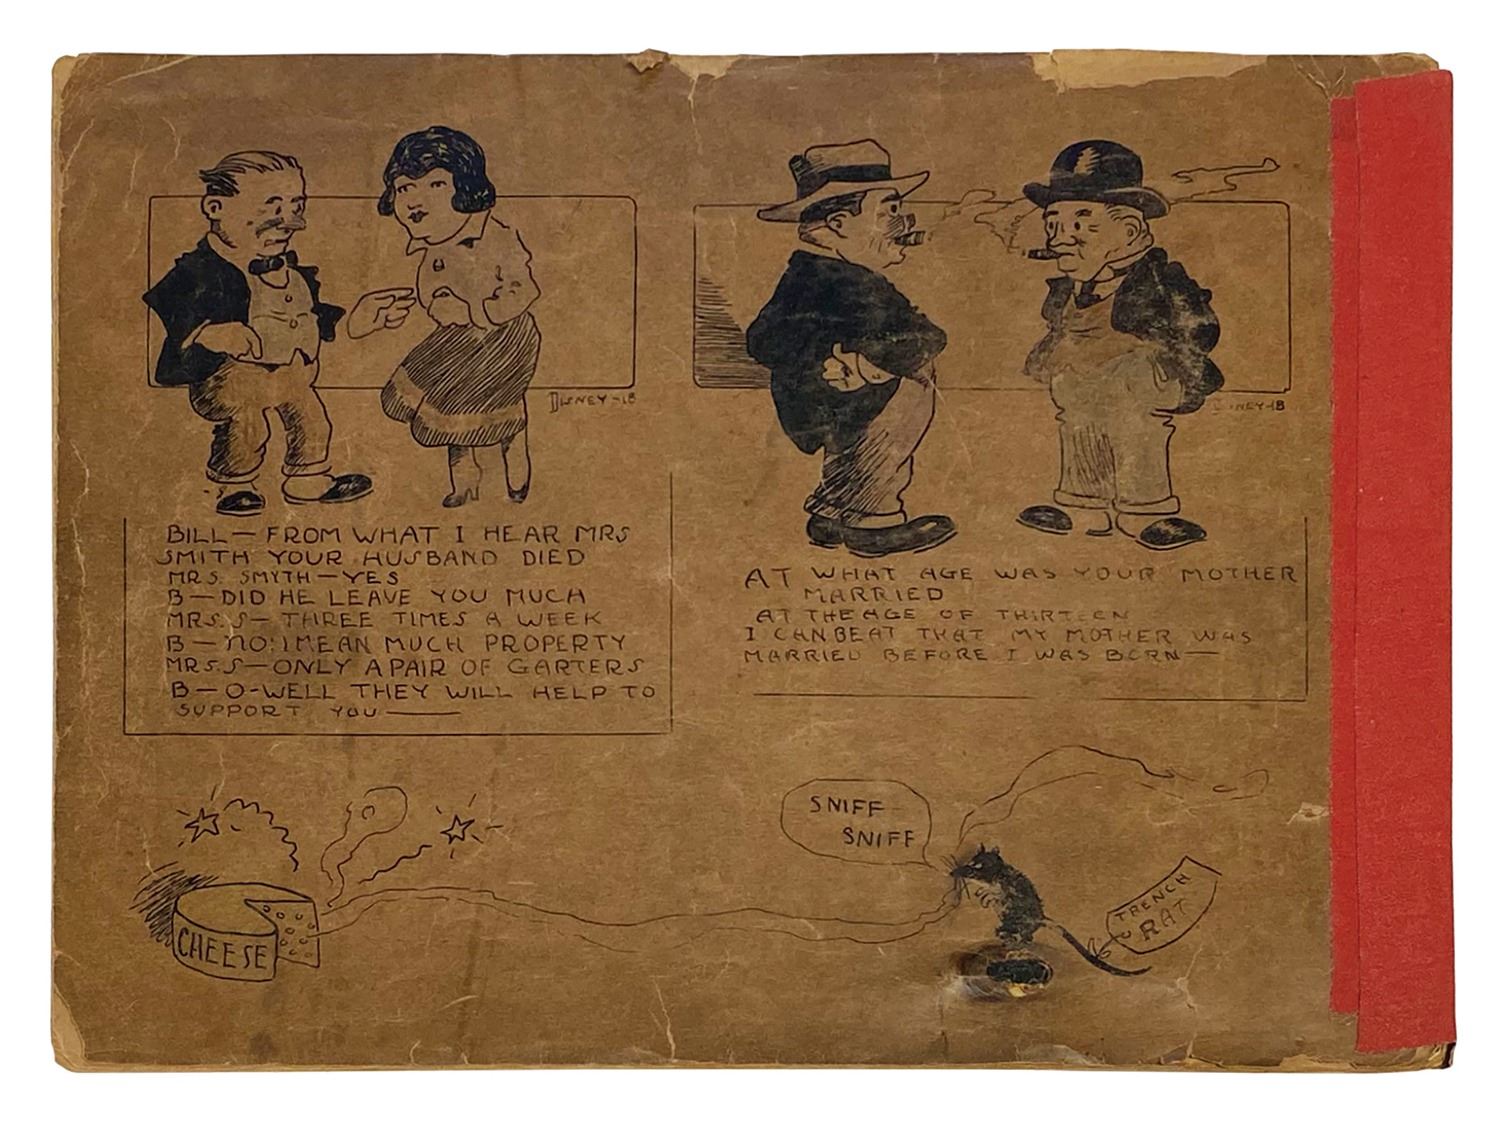 DISNEY-18
BILL— FROM WHAT I HEAR MRS
SMITH YOUR HUSBAND DIED
MRS. SMYTH—YES
B—DID HE LEAVE YOU MUCH
MRS. S— THREE TIMES A WEEK
B—NO: I MEAN MUCH PROPERTY
MRS. S—ONLY A PAIR OF GARTERS
B—O-WELL THEY WILL HELP TO
SUPPORT YOU—
DISNEY-18
AT WHAT AGE WAS YOUR MOTHER
MARRIED
AT THE AGE OF THIRTEEN
I CAN BEAT THAT MY MOTHER WAS
MARRIED BEFORE I WAS BORN—
CHEESE
SNIFF
SNIFF
TRENCH
RAT